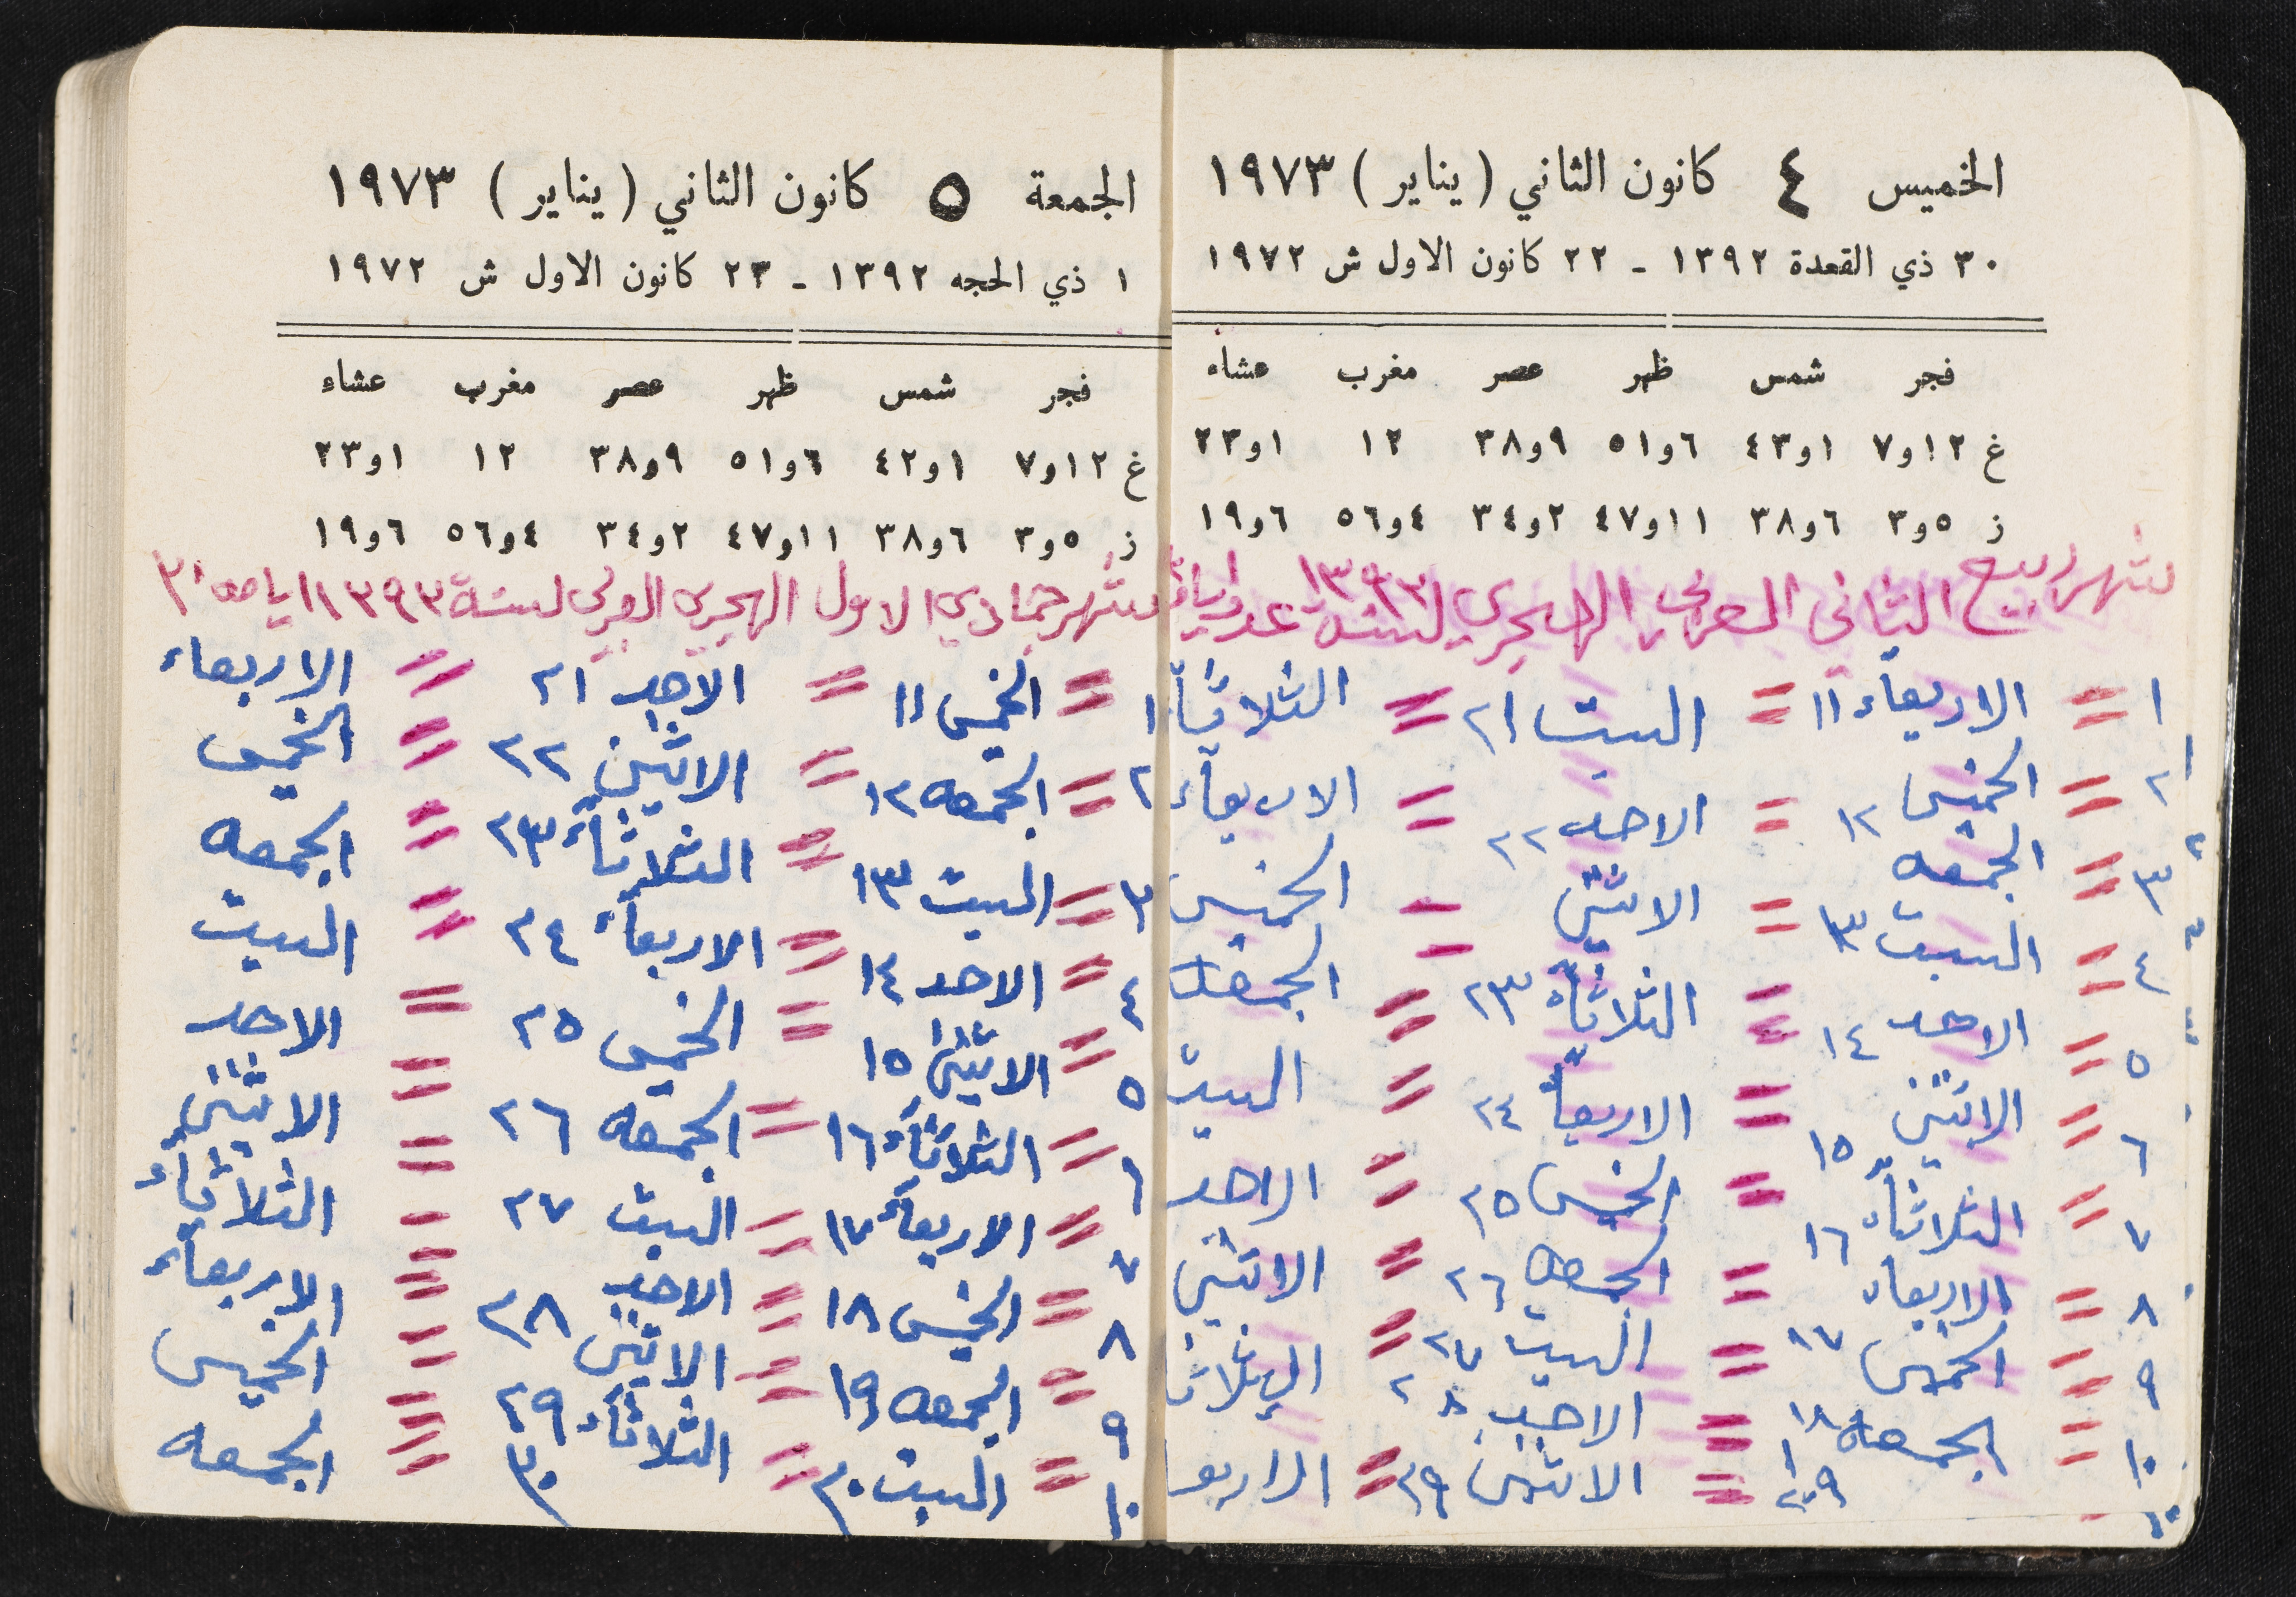 الخميس ٤ كانون الثاني (يناير) ١٩٧٣
٣٠ ذي القعدة ١٣٩٢ - ٢٢ كانون الاول ش ١٩٧٢
فجر شمس ظهر عصر مغرب عشاء
غ ١٢و٧ ١و٤٣ ٦و٥١ ٩و٣٨ ١٢ ١و٢٣
ز ٥و٣ ٦و٣٨ ١١و٤٧ ٢و٣٤ ٤و٥٦ ٦و١٩
شهر ربيع الثاني العربي الهجري لسنة ١٣٩٣
١ = الاربعاء ١١ = السبت ٢١ = الثلاثاء
٢ = الخميس ١٢ = الاحد ٢٢ = الاربعاء
٣ = الجمعه = الاثنين = الخميس
٤ = السبت ١٣ = الثلاثاء ٢٣ = الجمعه
٥ = الاحد ١٤ = الاربعاء ٢٤ = السبت
٦ = الاثنين ١٥ = الخميس ٢٥ = الاحد
٧ = الثلاثاء ١٦ = الجمعه ٢٦ = الاثنين
٨ = الاربعاء ١٧ = السبت ٢٧ = الثلاثا
٩ = الخميس ١٨ = الاحد ٢٨ = الاربعا
١٠ = الجمعه ١٩ = الاثنين ٢٩
الجمعة ٥ كانون الثاني (يناير) ١٩٧٣
١ ذي الحجه ١٣٩٢ - ٢٣ كانون الاول ش ١٩٧٢
فجر شمس ظهر عصر مغرب عشاء
غ ١٢و٧ ١و٤٢ ٦و٥١ ٩و٣٨ ١٢ ١و٢٣
ز ٥و٣ ٦و٣٨ ١١و٤٧ ٢و٣٤ ٤و٥٦ ٦و١٩
شهر جمادي الاول الهجري العربي لسنة ١٣٩٣
١ = الخميس ١١ = الاحد ٢١ = الاربعاء
٢ = الجمعه ١٢ = الاثنين ٢٢ = الخميس
٣ = السبت ١٣ = الثلاثاء ٢٣ = الجمعه
٤ = الاحد ١٤ = الاربعاء ٢٤ = السبت
٥ = الاثنين ١٥ = الخميس ٢٥ = الاحد
٦ = الثلاثاء ١٦ = الجمعه ٢٦ = الاثنين
٧ = الاربعاء ١٧ = السبت ٢٧ = الثلاثاء
٨ = الخميس ١٨ = الاحد ٢٨ = الاربعاء
٩ = الجمعه ١٩ = الاثنين ٢٩ = الخميس
١٠ = السبت ٢٠ = الثلاثاء ٣٠ = الجمعه